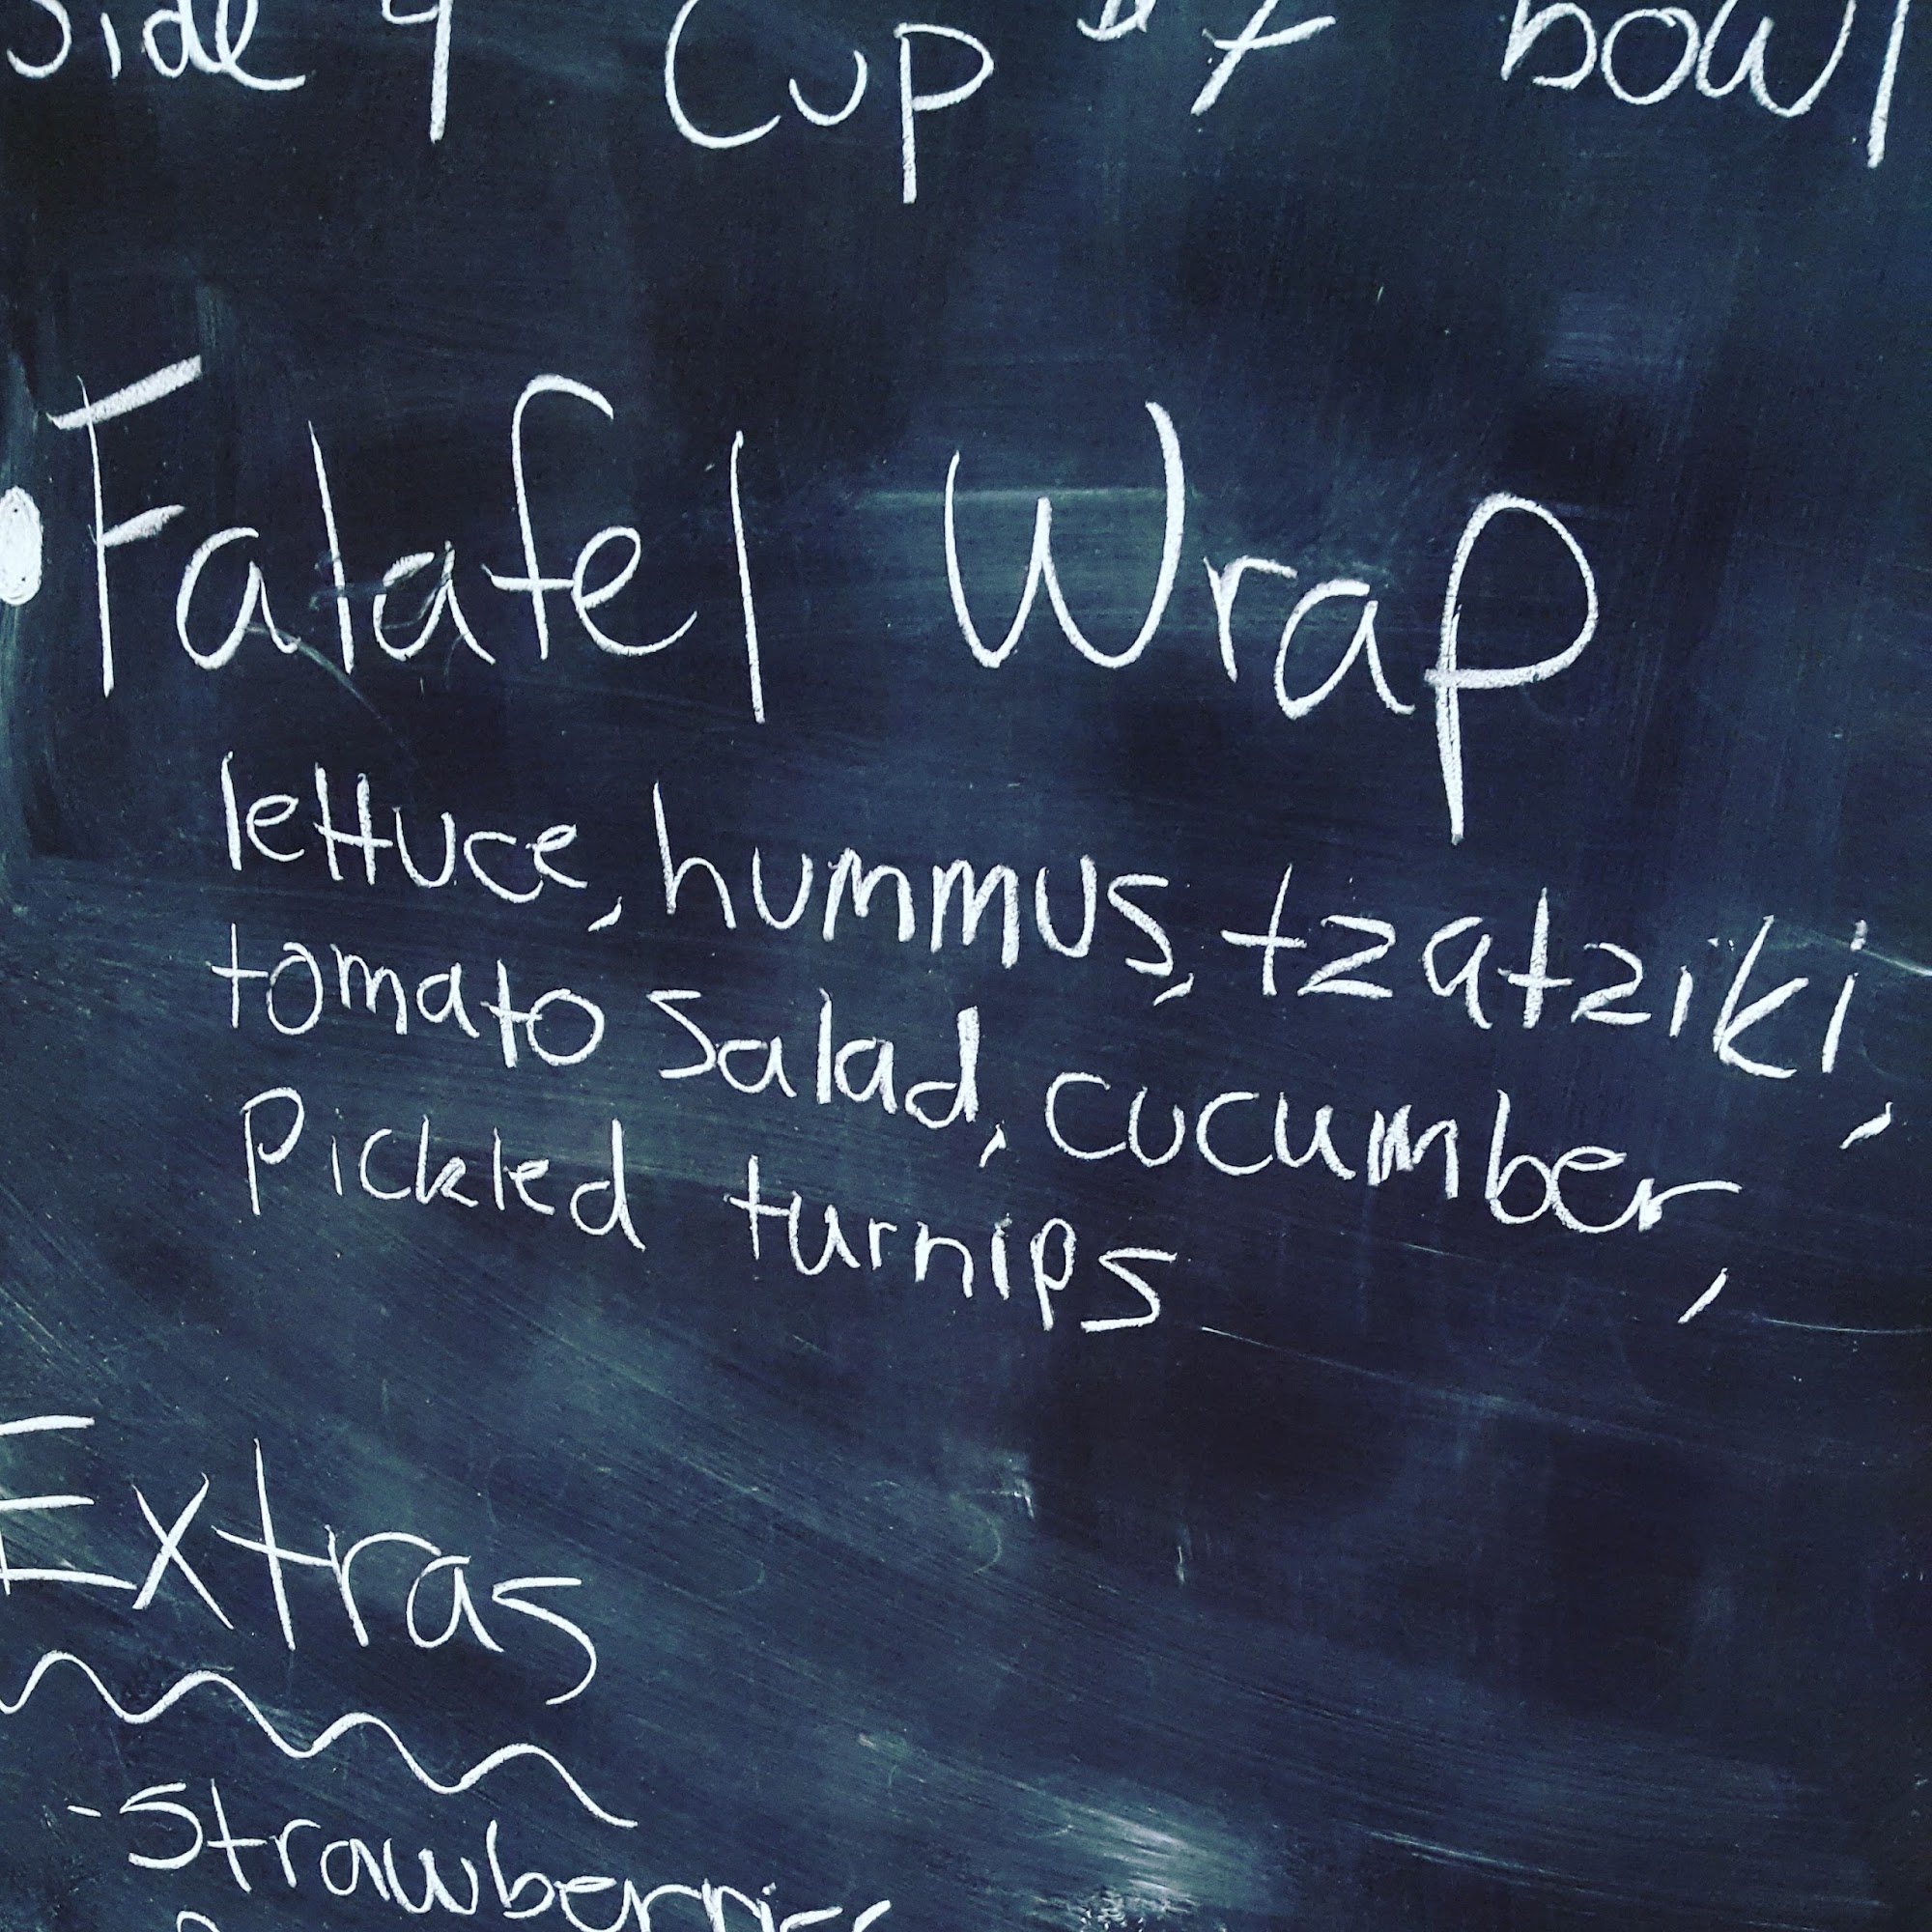 Side 4 Cup $7 bowl
Falafel Wrap
lettuce, hummus, tzatziki,
tomato salad, cucumber,
Pickled turnips
Extras
-Strawberries